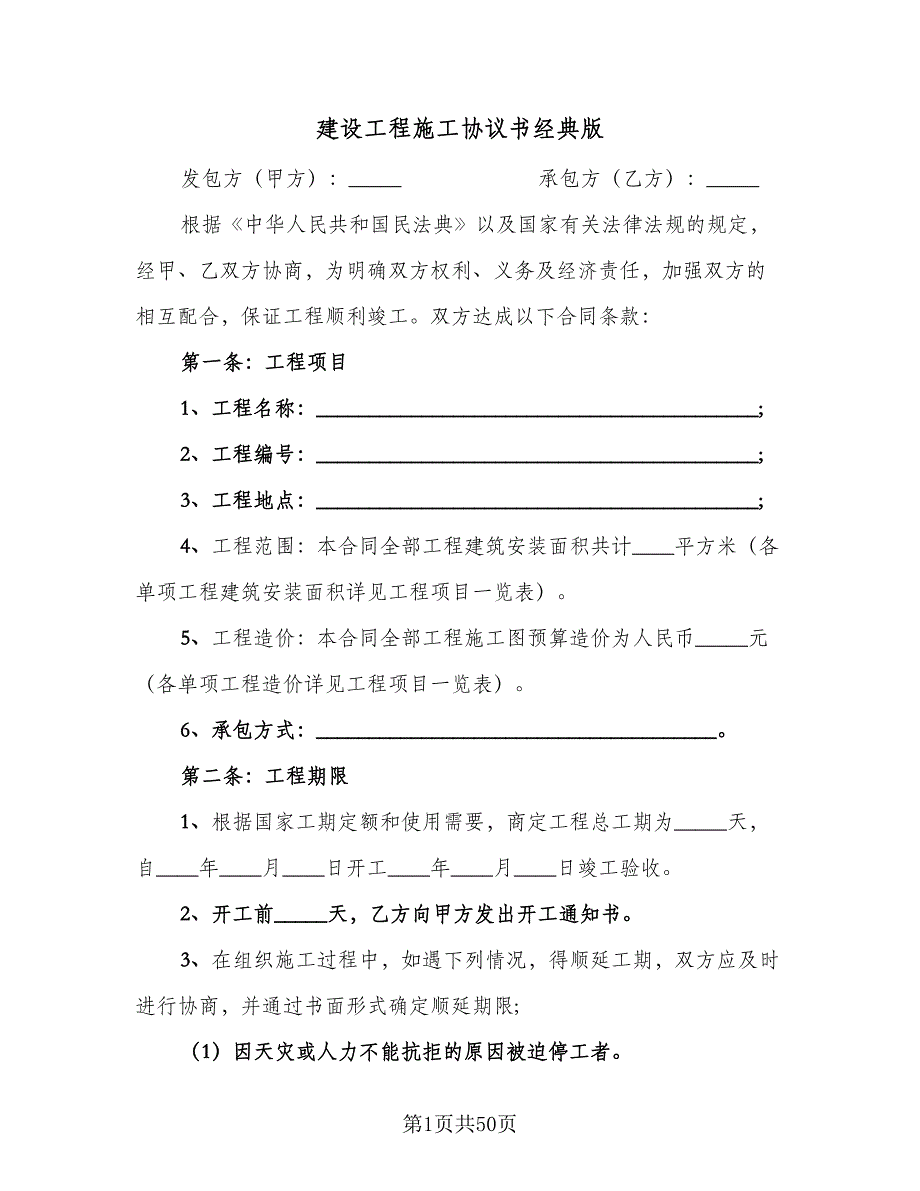 建设工程施工协议书经典版
发包方（甲方）：_____ 承包方（乙方）：_____
根据《中华人民共和国民法典》以及国家有关法律法规的规定，
经甲、乙双方协商，为明确双方权利、义务及经济责任，加强双方的
相互配合，保证工程顺利竣工。双方达成以下合同条款：
第一条：工程项目
1、工程名称：__________________________________________;
2、工程编号：__________________________________________;
3、工程地点：__________________________________________;
4、工程范围：本合同全部工程建筑安装面积共计____平方米（各
单项工程建筑安装面积详见工程项目一览表）。
5、工程造价：本合同全部工程施工图预算造价为人民币_____元
（各单项工程造价详见工程项目一览表）。
6、承包方式：______________________________________。
第二条：工程期限
1、根据国家工期定额和使用需要，商定工程总工期为_____天，
自____年____月____日开工____年____月____日竣工验收。
2、开工前_____天，乙方向甲方发出开工通知书。
3、在组织施工过程中，如遇下列情况，得顺延工期，双方应及时
进行协商，并通过书面形式确定顺延期限;
（1）因天灾或人力不能抗拒的原因被迫停工者。
第1页共50页